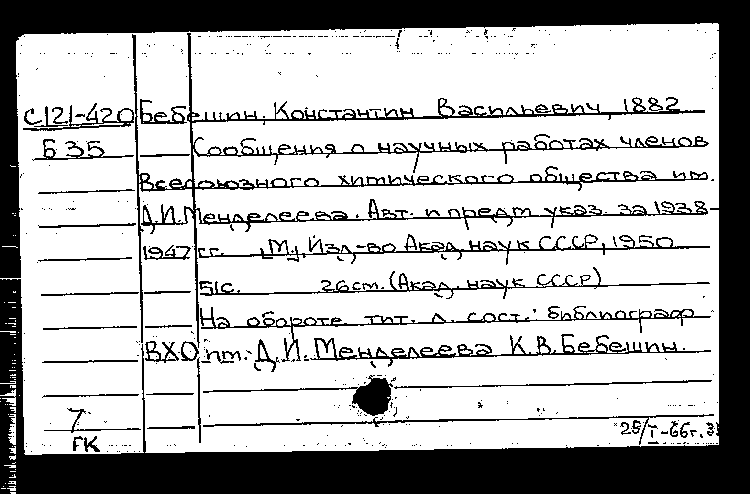 С121-420 Бебешин, Константин Васильевич, 1882
Б 35 Сообщения о научных работах членов
Всесоюзного химического общества им.
Д.И.Менделеева. Авт. и предм указ. за 1938-
1947 гг. [М], Изд-во Акад. наук СССР, 1950
51с. 26см. (Акад. наук СССР)
На обороте тит. л. сост.: библиограф
ВХО им. Д.И. Менделеева К.В.Бебешин.
7
ГК
25/I-66г.